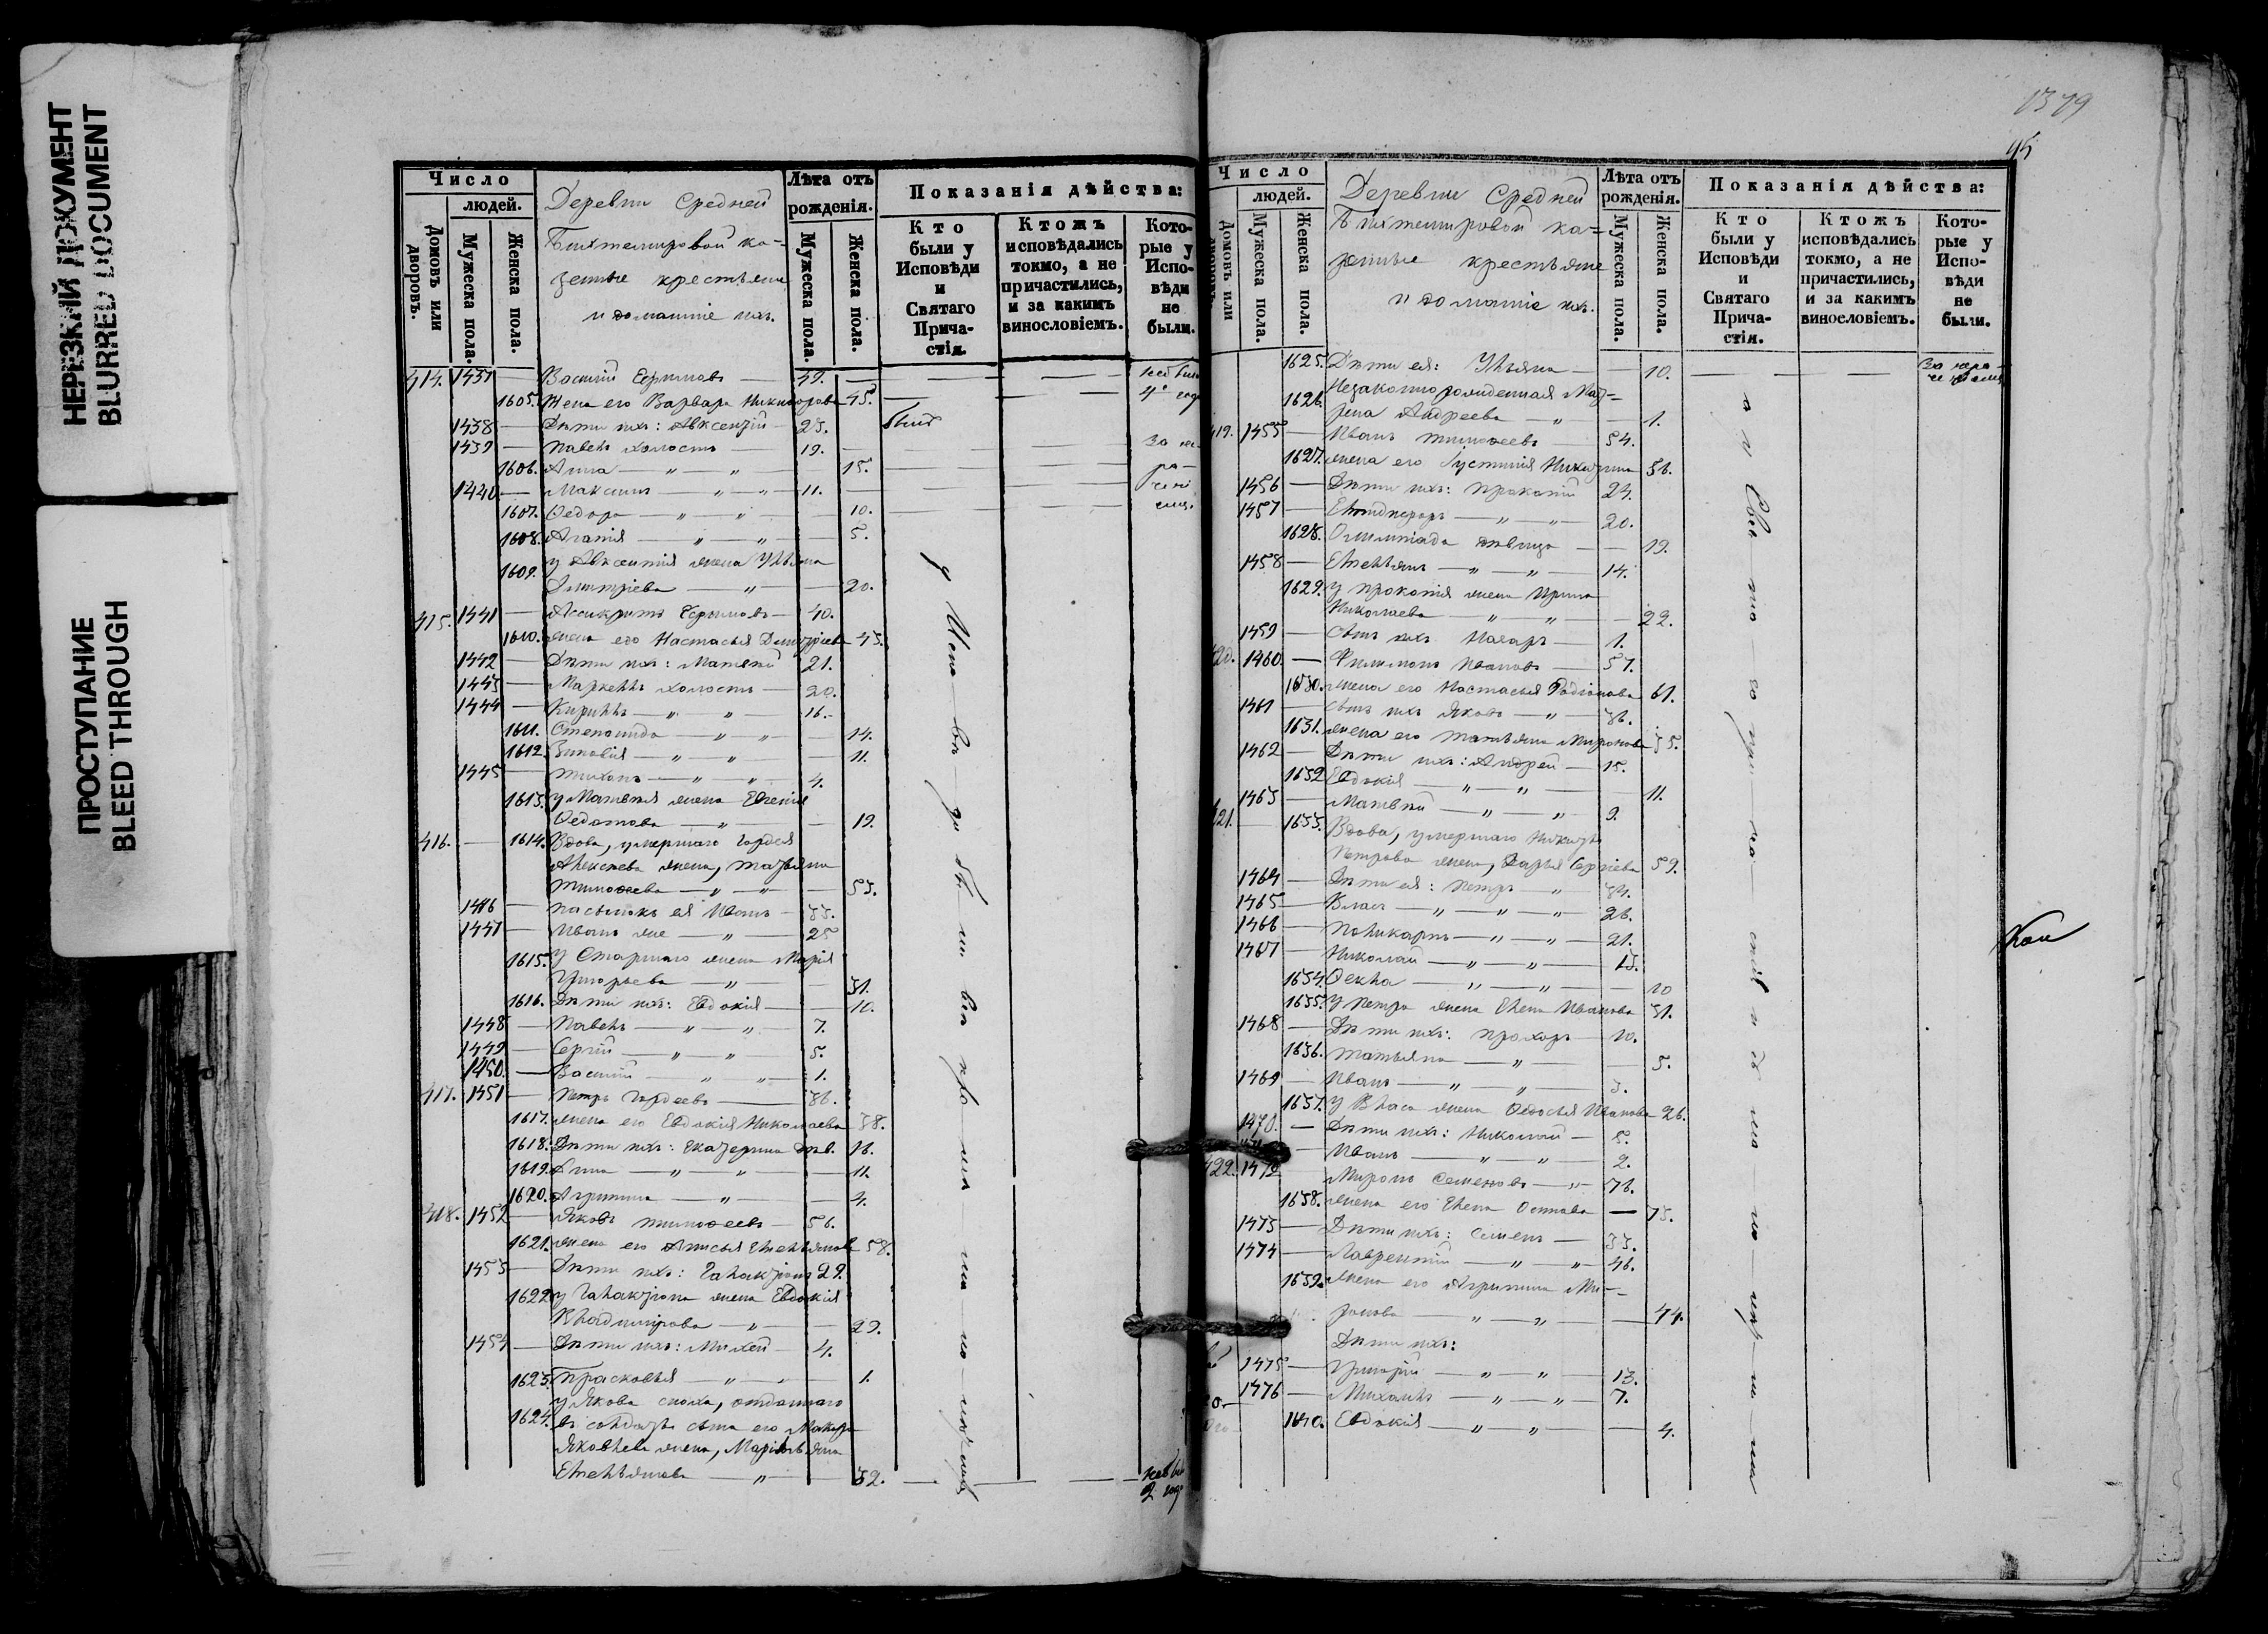 НЕРЕЗКИЙ ДОКУМЕНТ
BLURRED DOCUMENT
ПРОСТУПАНИЕ
BLEED THROUGH
Число
людей.
Домовъ или дворовъ.
Мужеска пола.
Женска пола.
Деревни Средней
Бихтемировой ка=
зенные крестьяне
и домашніе ихъ.
Лѣта отъ рожденія.
Мужеска пола.
Женска пола.
Показанія дѣйства:
Кто были у Исповѣди и Святаго Прича-стія.
Ктожъ исповѣдались токмо, а не причастились, и за какимъ винословіемъ.
Кото-рые у Испо-вѣди не были.
414. 1437 — Василий Ефимовъ — 49. —
1605. Жена его Варвара Никифорова 45.
1438 — Дѣти ихъ: Авксентій — 23.
1439 — Павелъ холостъ — 19.
1606. Анна — „ — „ — 15.
1440 — Максимъ — „ — „ — 11.
1607. Ѳедора — „ — „ — 10.
1608. Агапія — „ — „ — 5.
1609. у Авксентія жена Ульяна
Дмитріева — „ — 20.
415. 1441 — Ассикритъ Ефимовъ — 40.
1610. жена его Настасья Дмитріева 43.
1442 — Дѣти ихъ: Матвей — 21.
1443 — Маркеллъ холостъ — 20.
1444 — Кириллъ — „ — „ — 16.
1611. Степанида — „ — „ — 14.
1612. Зиновія — „ — „ — 11.
1445 — Тихонъ — „ — „ — 4.
1613. у Матвея жена Евгенія
Ѳедотова — „ — 19.
416. — 1614. Вдова, умершаго Гордея
Алексеева жена, Татьяна
Тимоѳеева — „ — „ — 53.
1446 — пасынокъ ея Иванъ — 33.
1447 — Иванъ же — „ — 25
1615. у Старшаго жена Марія
Григорьева — „ — 31.
1616. Дѣти ихъ: Евдокія — 10.
1448 — Павелъ — „ — „ — 7.
1449 — Сергій — „ — „ — 5.
1450. — Василій — „ — „ — 1.
417. 1451 — Петръ Гордеевъ — 36.
1617. жена его Евдокія Николаева 38.
1618. Дѣти ихъ: Екатерина дѣв. 16.
1619. Анна — „ — „ — 11.
1620. Агрипина — „ — 4.
418. 1452 — Яковъ Тимоѳеевъ — 56.
1621. жена его Анисья Емельянова 58.
1453 — Дѣти ихъ: Галактіонъ 29.
1622. у Галактіона жена Евдокія
Владимірова — „ — 29.
1454 — Дѣти ихъ: Михей — 4.
1623. Прасковья — „ — 1.
у Якова сноха, отданнаго
1624. въ солдаты сына его Макара
Яковлева жена, Маріамна
Емельянова — „ — 32.
1379
95
Число
людей.
Домовъ или дворовъ.
Мужеска пола.
Женска пола.
Деревни Средней
Бихтемировой ка=
зенные крестьяне
и домашніе ихъ.
Лѣта отъ рожденія.
Мужеска пола.
Женска пола.
Показанія дѣйства:
Кто были у Исповѣди и Святаго Прича-стія.
Ктожъ исповѣдались токмо, а не причастились, и за какимъ винословіемъ.
Кото-рые у Испо-вѣди не были.
1625. Дѣти ея: Ульяна — 10.
1626. Незаконнорожденная Мат=
рена Андреева — „ — 1.
419. 1455 — Иванъ Тимоѳеевъ — 54.
1627. жена его Іустинія Никитина 56.
1456 — Дѣти ихъ: Прокопій 24.
1457 — — „ — „ — 20.
1628. Олимпіада дѣвица — 19.
1458 — Емельянъ — „ — „ — 14.
1629. у Прокопія жена Ирина
Николаева — „ — „ — 22.
1459 — сынъ ихъ Назаръ — 1.
420. 1460. — Филимонъ Ивановъ — 57.
1630. жена его Настасья Родіонова 61.
1461 — сынъ ихъ Яковъ — „ — 36.
1631. жена его Татьяна Миронова 35.
1462 — Дѣти ихъ: Андрей — 15.
1632. Евдокія — „ — „ — 11.
1463 — Матвей — „ — „ — 9.
421. — 1633. Вдова, умершаго Никиты
Петрова жена, Дарья Сергіева 59.
1464 — Дѣти ея: Петръ — „ — 34.
1465 — Власъ — „ — „ — „ — 26.
1466 — Поликарпъ — „ — „ — 21.
1467 — Николай — „ — „ — 13.
1634. Ѳекла — „ — „ — 10
1635. у Петра жена Елена Иванова 31.
1468 — Дѣти ихъ: Прохоръ — 10.
1636. Татьяна — „ — 5.
1469 — Иванъ — „ — „ — 3.
1637. у Власа жена Ѳедосья Иванова 26.
1470. — Дѣти ихъ: Николай — 5.
Иванъ — „ — „ — 2.
422. 1472 Миронъ Семеновъ — „ — 76.
1638. жена его Елена Осипова — 75.
1473 — Дѣти ихъ: Семенъ — 33.
1474 — Лаврентій — „ — „ — 46.
1639. жена его Агрипина Ми-
ронова — „ — „ — 44.
Дѣти ихъ:
1475 — Григорій — „ — „ — 13.
1476 — Михаилъ — „ — „ — 7.
1640. Евдокія — „ — „ — 4.